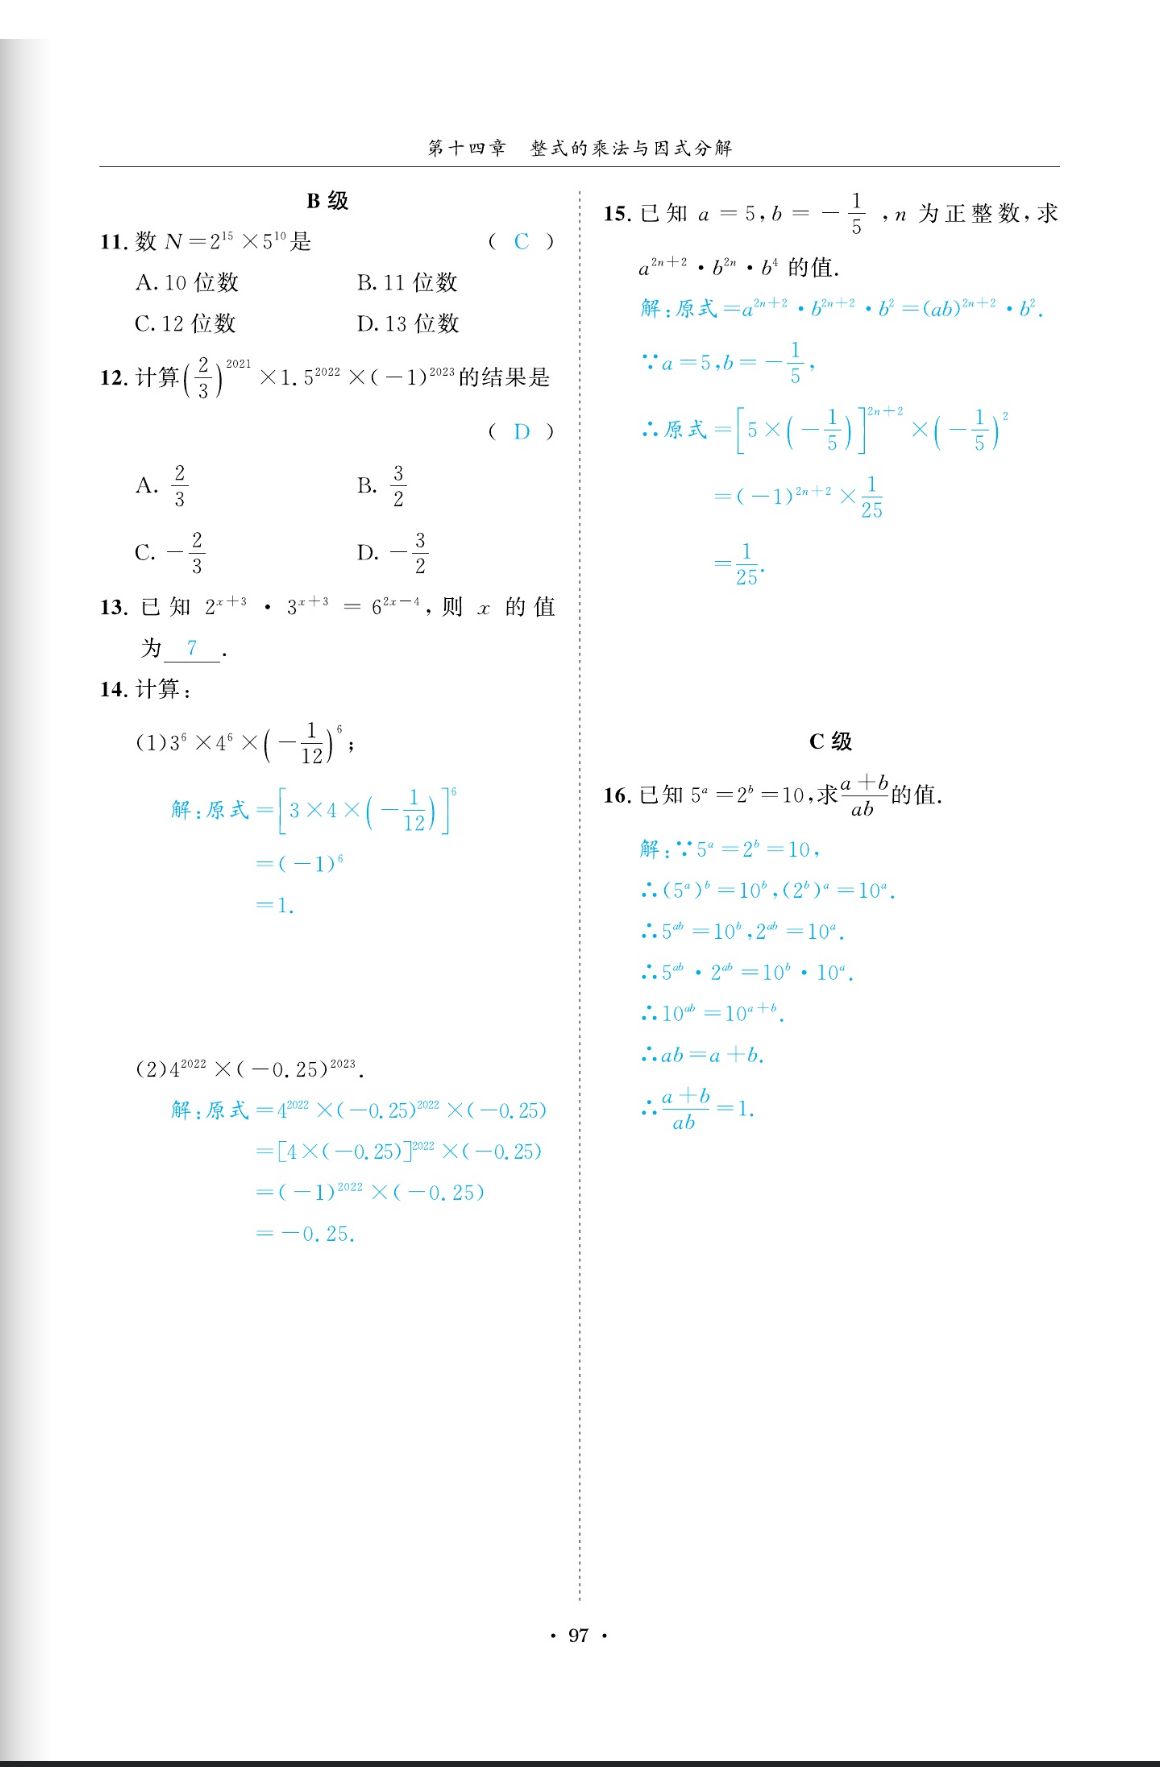 第十四章　整式的乘法与因式分解
B 级
11. 数 N＝2¹⁵×5¹⁰是（ C ）
A. 10 位数　B. 11 位数
C. 12 位数　D. 13 位数
12. 计算(2/3)²⁰²¹×1.5²⁰²²×(－1)²⁰²³的结果是
（ D ）
A. 2/3　B. 3/2
C. －2/3　D. －3/2
13. 已知 2ˣ⁺³・3ˣ⁺³＝6²ˣ⁻⁴，则 x 的值
为 7 .
14. 计算：
(1)3⁶×4⁶×(－1/12)⁶；
解：原式＝[3×4×(－1/12)]⁶
＝(－1)⁶
＝1.
(2)4²⁰²²×(－0.25)²⁰²³.
解：原式＝4²⁰²²×(－0.25)²⁰²²×(－0.25)
＝[4×(－0.25)]²⁰²²×(－0.25)
＝(－1)²⁰²²×(－0.25)
＝－0.25.
15. 已知 a＝5，b＝－1/5，n 为正整数，求
a²ⁿ⁺²・b²ⁿ・b⁴ 的值.
解：原式＝a²ⁿ⁺²・b²ⁿ⁺²・b²＝(ab)²ⁿ⁺²・b².
∵a＝5，b＝－1/5，
∴原式＝[5×(－1/5)]²ⁿ⁺²×(－1/5)²
＝(－1)²ⁿ⁺²×1/25
＝1/25.
C 级
16. 已知 5ᵃ＝2ᵇ＝10，求(a＋b)/ab的值.
解：∵5ᵃ＝2ᵇ＝10，
∴(5ᵃ)ᵇ＝10ᵇ，(2ᵇ)ᵃ＝10ᵃ.
∴5ᵃᵇ＝10ᵇ，2ᵃᵇ＝10ᵃ.
∴5ᵃᵇ・2ᵃᵇ＝10ᵇ・10ᵃ.
∴10ᵃᵇ＝10ᵃ⁺ᵇ.
∴ab＝a＋b.
∴(a＋b)/ab＝1.
・97・